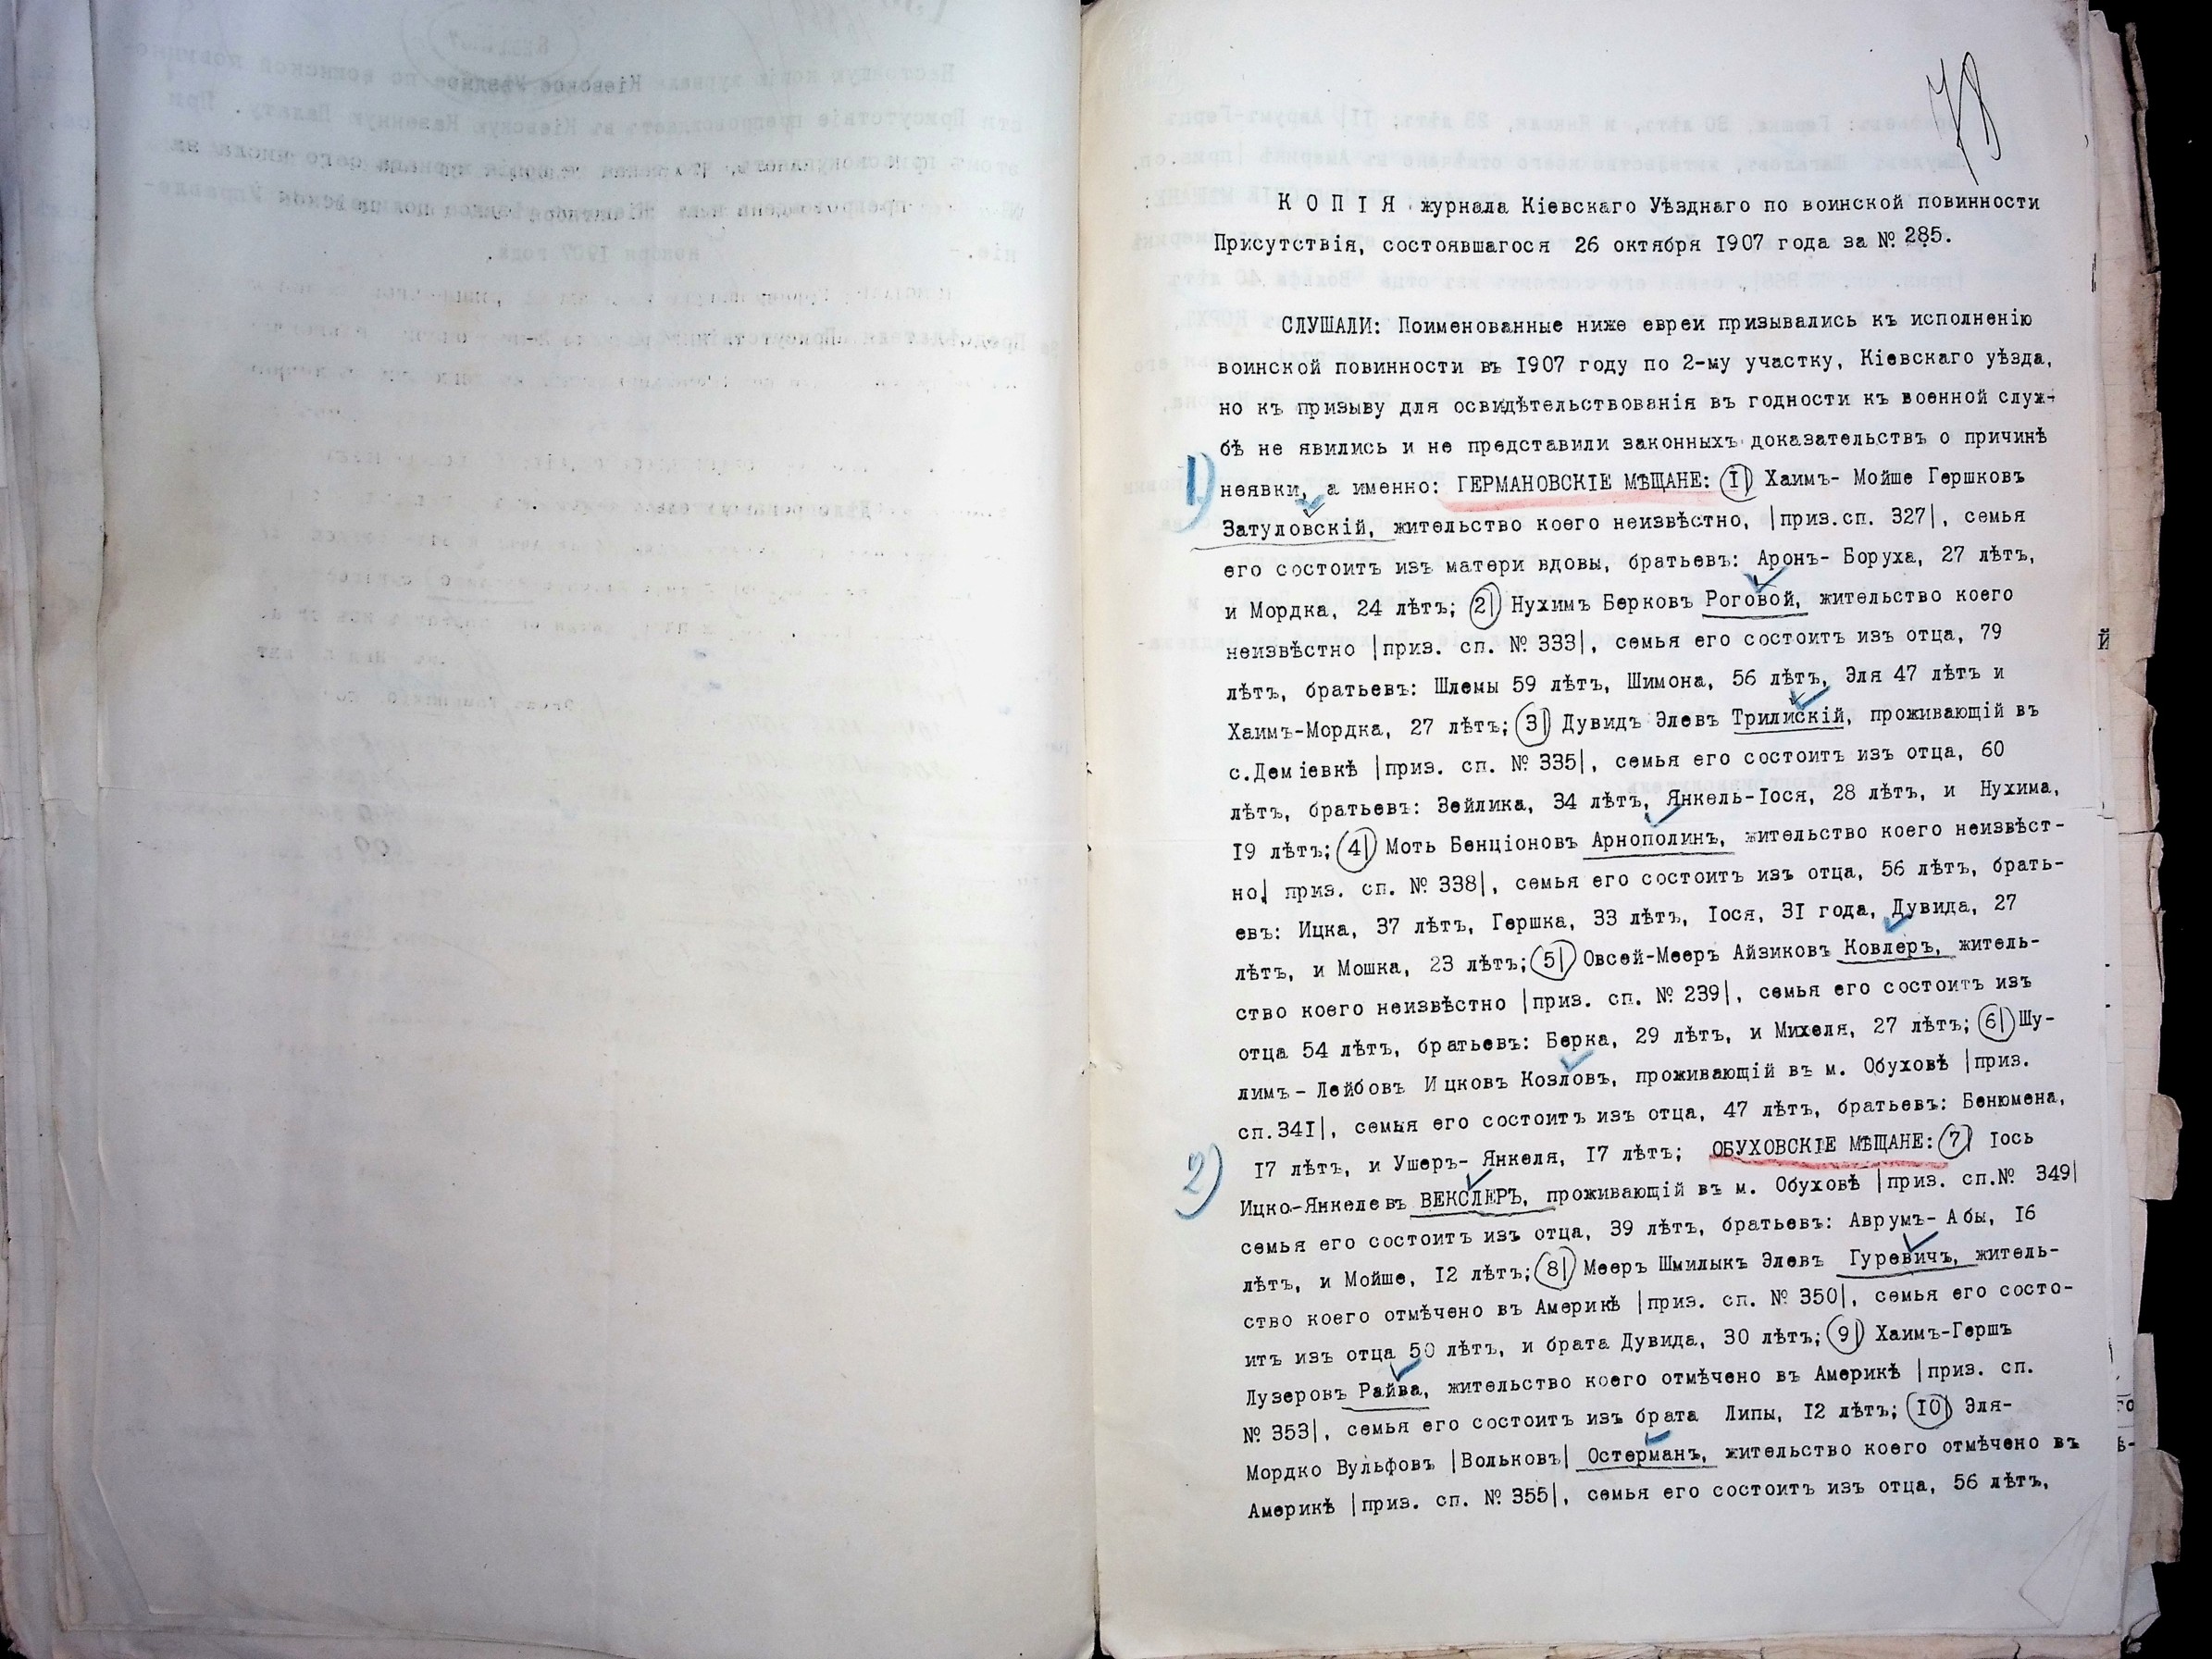 78
К О П І Я журнала Кіевскаго Уѣзднаго по воинской повинности
Присутствія, состоявшагося 26 октября I907 года за № 285.
СЛУШАЛИ: Поименованные ниже евреи призывались къ исполненію
воинской повинности въ I907 году по 2-му участку, Кіевскаго уѣзда,
но къ призыву для освидѣтельствованія въ годности къ военной служ-
бѣ не явились и не представили законныхъ доказательствъ о причинѣ
1) неявки, а именно: ГЕРМАНОВСКІЕ МѢЩАНЕ: I| Хаимъ- Мойше Гершковъ
Затуловскій, жительство коего неизвѣстно, |приз.сп. 327|, семья
его состоитъ изъ матери вдовы, братьевъ: Аронъ- Боруха, 27 лѣтъ,
и Мордка, 24 лѣтъ; 2| Нухимъ Берковъ Роговой, жительство коего
неизвѣстно |приз. сп. № 333|, семья его состоитъ изъ отца, 79
лѣтъ, братьевъ: Шлемы 59 лѣтъ, Шимона, 56 лѣтъ, Эля 47 лѣтъ и
Хаимъ-Мордка, 27 лѣтъ; 3| Дувидъ Элевъ Трилискій, проживающій въ
с.Деміевкѣ |приз. сп. № 335|, семья его состоитъ изъ отца, 60
лѣтъ, братьевъ: Зейлика, 34 лѣтъ, Янкель-Іося, 28 лѣтъ, и Нухима,
I9 лѣтъ; 4| Моть Бенціоновъ Арнополинъ, жительство коего неизвѣст-
но| приз. сп. № 338|, семья его состоитъ изъ отца, 56 лѣтъ, брать-
евъ: Ицка, 37 лѣтъ, Гершка, 33 лѣтъ, Іося, 3I года, Дувида, 27
лѣтъ, и Мошка, 23 лѣтъ; 5| Овсей-Мееръ Айзиковъ Ковлеръ, житель-
ство коего неизвѣстно |приз. сп. № 239|, семья его состоитъ изъ
отца 54 лѣтъ, братьевъ: Берка, 29 лѣтъ, и Михеля, 27 лѣтъ; 6| Шу-
лимъ - Лейбовъ Ицковъ Козловъ, проживающій въ м. Обуховѣ |приз.
сп.34I|, семья его состоитъ изъ отца, 47 лѣтъ, братьевъ: Бенюмена,
I7 лѣтъ, и Ушеръ- Янкеля, I7 лѣтъ; ОБУХОВСКІЕ МѢЩАНЕ: 7| Іось
2) Ицко-Янкелевъ ВЕКСЛЕРЪ, проживающій въ м. Обуховѣ |приз. сп.№ 349|
семья его состоитъ изъ отца, 39 лѣтъ, братьевъ: Аврумъ- Абы, I6
лѣтъ, и Мойше, I2 лѣтъ; 8| Мееръ Шмилыкъ Элевъ Гуревичъ, житель-
ство коего отмѣчено въ Америкѣ |приз. сп. № 350|, семья его состо-
итъ изъ отца 50 лѣтъ, и брата Дувида, 30 лѣтъ; 9| Хаимъ-Гершъ
Лузеровъ Райва, жительство коего отмѣчено въ Америкѣ |приз. сп.
№ 353|, семья его состоитъ изъ брата Липы, I2 лѣтъ; I0| Эля-
Мордко Вульфовъ |Вольковъ| Остерманъ, жительство коего отмѣчено въ
Америкѣ |приз. сп. № 355|, семья его состоитъ изъ отца, 56 лѣтъ,